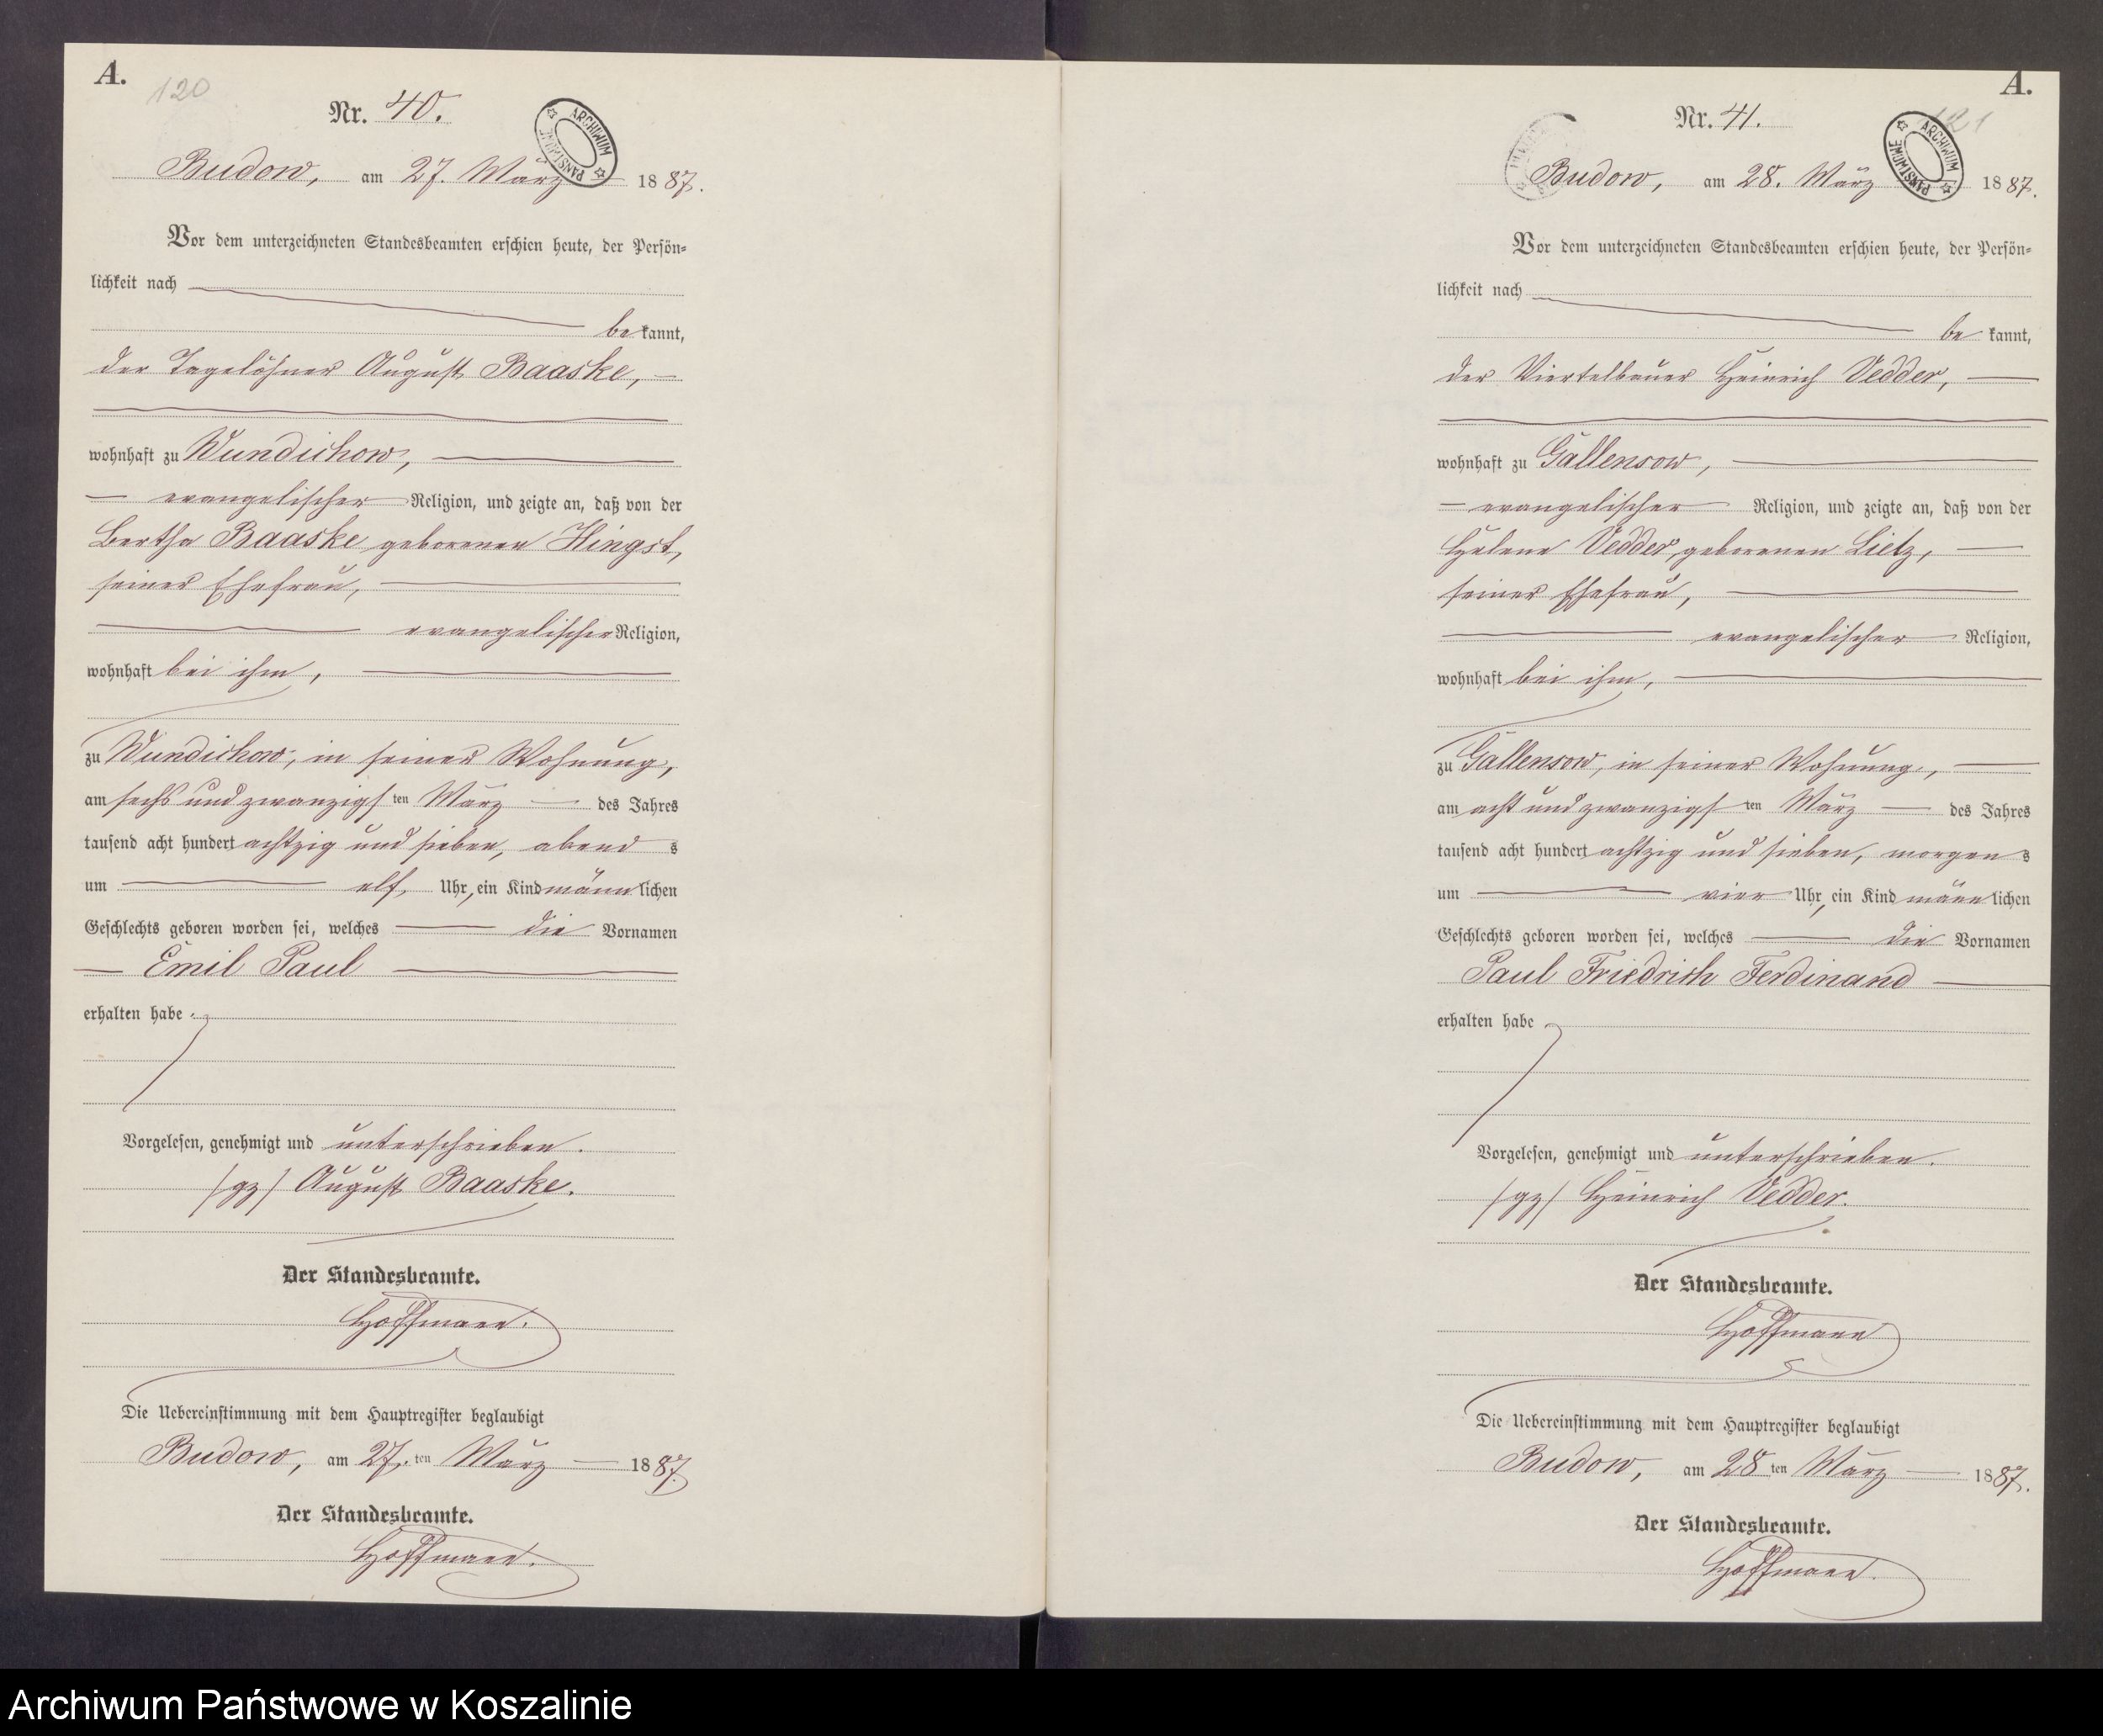 A.
120
Nr. 40.
ARCHIWUM PAŃSTWOWE
Budow, am 27. März 1887.
Vor dem unterzeichneten Standesbeamten erschien heute, der Persön=
lichkeit nach
bekannt,
der Tagelöhner August Baaske,
wohnhaft zu Wundichow,
evangelischer Religion, und zeigte an, daß von der
Bertha Baaske geborenen Hingst,
seiner Ehefrau,
evangelischer Religion,
wohnhaft bei ihm,
zu Wundichow, in seiner Wohnung,
am sechs und zwanzigsten März des Jahres
tausend acht hundert achtzig und sieben, abends
um elf Uhr, ein Kind männlichen
Geschlechts geboren worden sei, welches die Vornamen
Emil Paul
erhalten habe.
Vorgelesen, genehmigt und unterschrieben.
/gz/ August Baaske.
Der Standesbeamte.
Hoffmann.
Die Uebereinstimmung mit dem Hauptregister beglaubigt
Budow, am 27.ten März 1887.
Der Standesbeamte.
Hoffmann.
A.
121
Nr. 41.
ARCHIWUM PAŃSTWOWE
Budow, am 28. März 1887.
Vor dem unterzeichneten Standesbeamten erschien heute, der Persön=
lichkeit nach
bekannt,
der Viertelbauer Heinrich Vedder,
wohnhaft zu Gallensow,
evangelischer Religion, und zeigte an, daß von der
Helene Vedder, geborenen Lietz,
seiner Ehefrau,
evangelischer Religion,
wohnhaft bei ihm,
zu Gallensow, in seiner Wohnung,
am acht und zwanzigsten März des Jahres
tausend acht hundert achtzig und sieben, morgens
um vier Uhr, ein Kind männlichen
Geschlechts geboren worden sei, welches die Vornamen
Paul Friedrich Ferdinand
erhalten habe
Vorgelesen, genehmigt und unterschrieben.
/gz/ Heinrich Vedder.
Der Standesbeamte.
Hoffmann
Die Uebereinstimmung mit dem Hauptregister beglaubigt
Budow, am 28ten März 1887.
Der Standesbeamte.
Hoffmann.
Archiwum Państwowe w Koszalinie